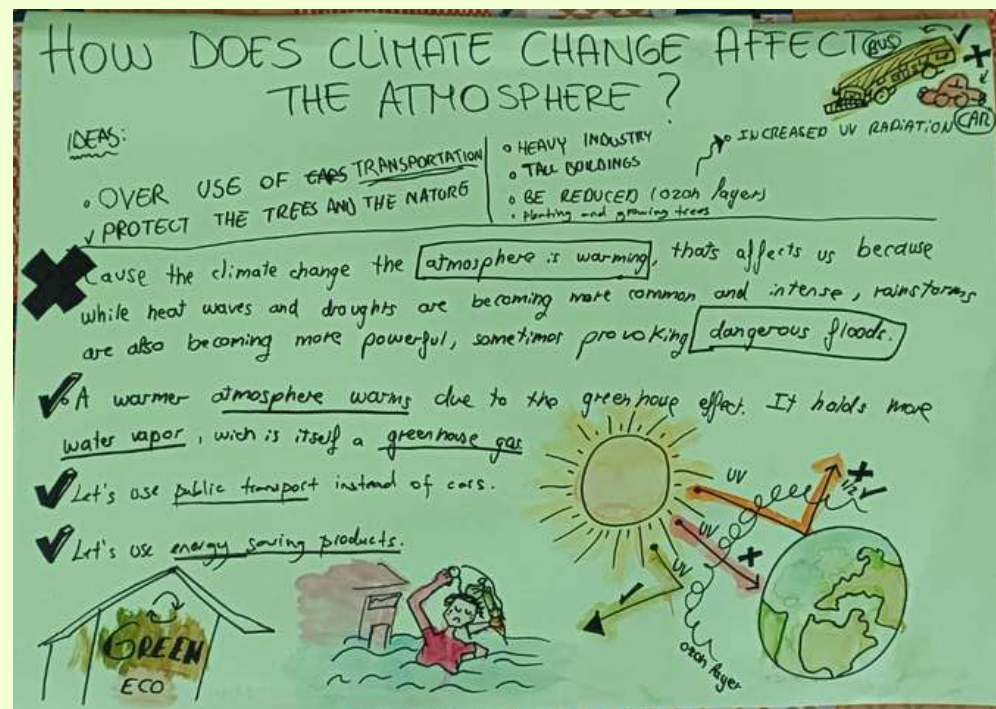 HOW DOES CLIMATE CHANGE AFFECT
THE ATMOSPHERE?
BUS
CAR
IDEAS:
• OVER USE OF CARS TRANSPORTATION
✓ PROTECT THE TREES AND THE NATURE
• HEAVY INDUSTRY
• TALL BUILDINGS
• BE REDUCED (ozon layer)
• Planting and growing trees
• INCREASED UV RADIATION
Cause the climate change the atmosphere is warming, thats affects us because
while heat waves and droughts are becoming more common and intense, rainstorms
are also becoming more powerful, sometimes provoking dangerous floods.
A warmer atmosphere warms due to the green house effect. It holds more
water vapor, wich is itself a greenhouse gas
Let's use public transport instead of cars.
Let's use energy saving products.
UV
UV
UV
1/2
ozon layer
GREEN
ECO